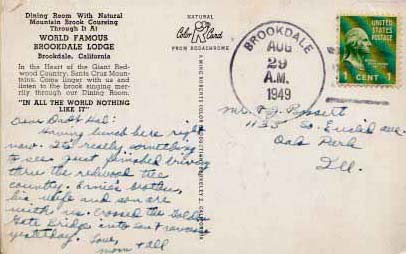 Dining Room With Natural
Mountain Brook Coursing
Through It At
WORLD FAMOUS
BROOKDALE LODGE
Brookdale, California
In the Heart of the Giant Red-
wood Country, Santa Cruz Moun-
tains. Come linger with us and
listen to the brook singing mer-
rily through our Dining Room.
"IN ALL THE WORLD NOTHING
LIKE IT"
Dear Dad & Hal:
Having lunch here right
now. It's really something
to see. Just finished driving
thru the redwood tree
country. Ernie's brother,
his wife and son are
with us. Crossed the Golden
Gate Bridge into San Francisco
yesterday. Love,
Mom & all
NATURAL
Color Card
FROM KODACHROME
BROOKDALE
AUG
29
A.M.
1949
UNITED
STATES
POSTAGE
1 CENT 1
Mr.
1135 So. Euclid ave.
Oak Park
Ill.